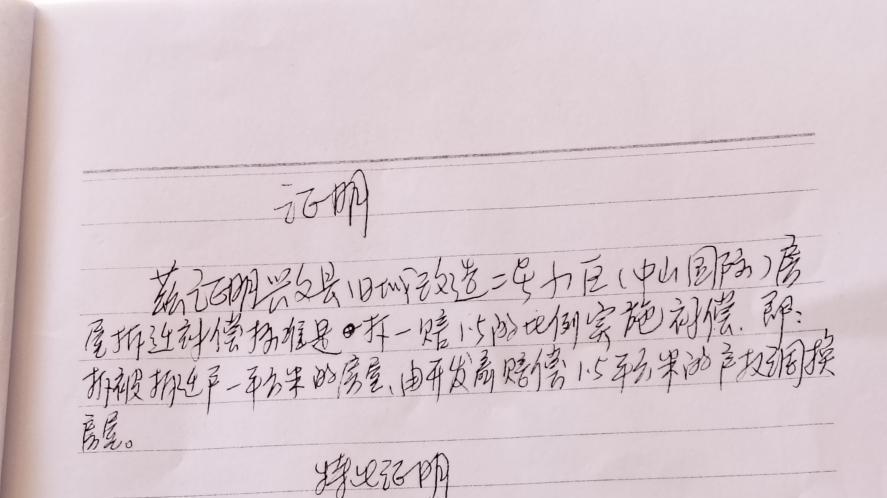 证明
兹证明兴文县旧城改造二号小区(中山国际)房
屋拆迁补偿标准是拆一赔1.5的比例实施补偿.即:
拆被拆迁户一平方米的房屋、由开发商赔偿1.5平方米的产权调换
房屋。
特此证明